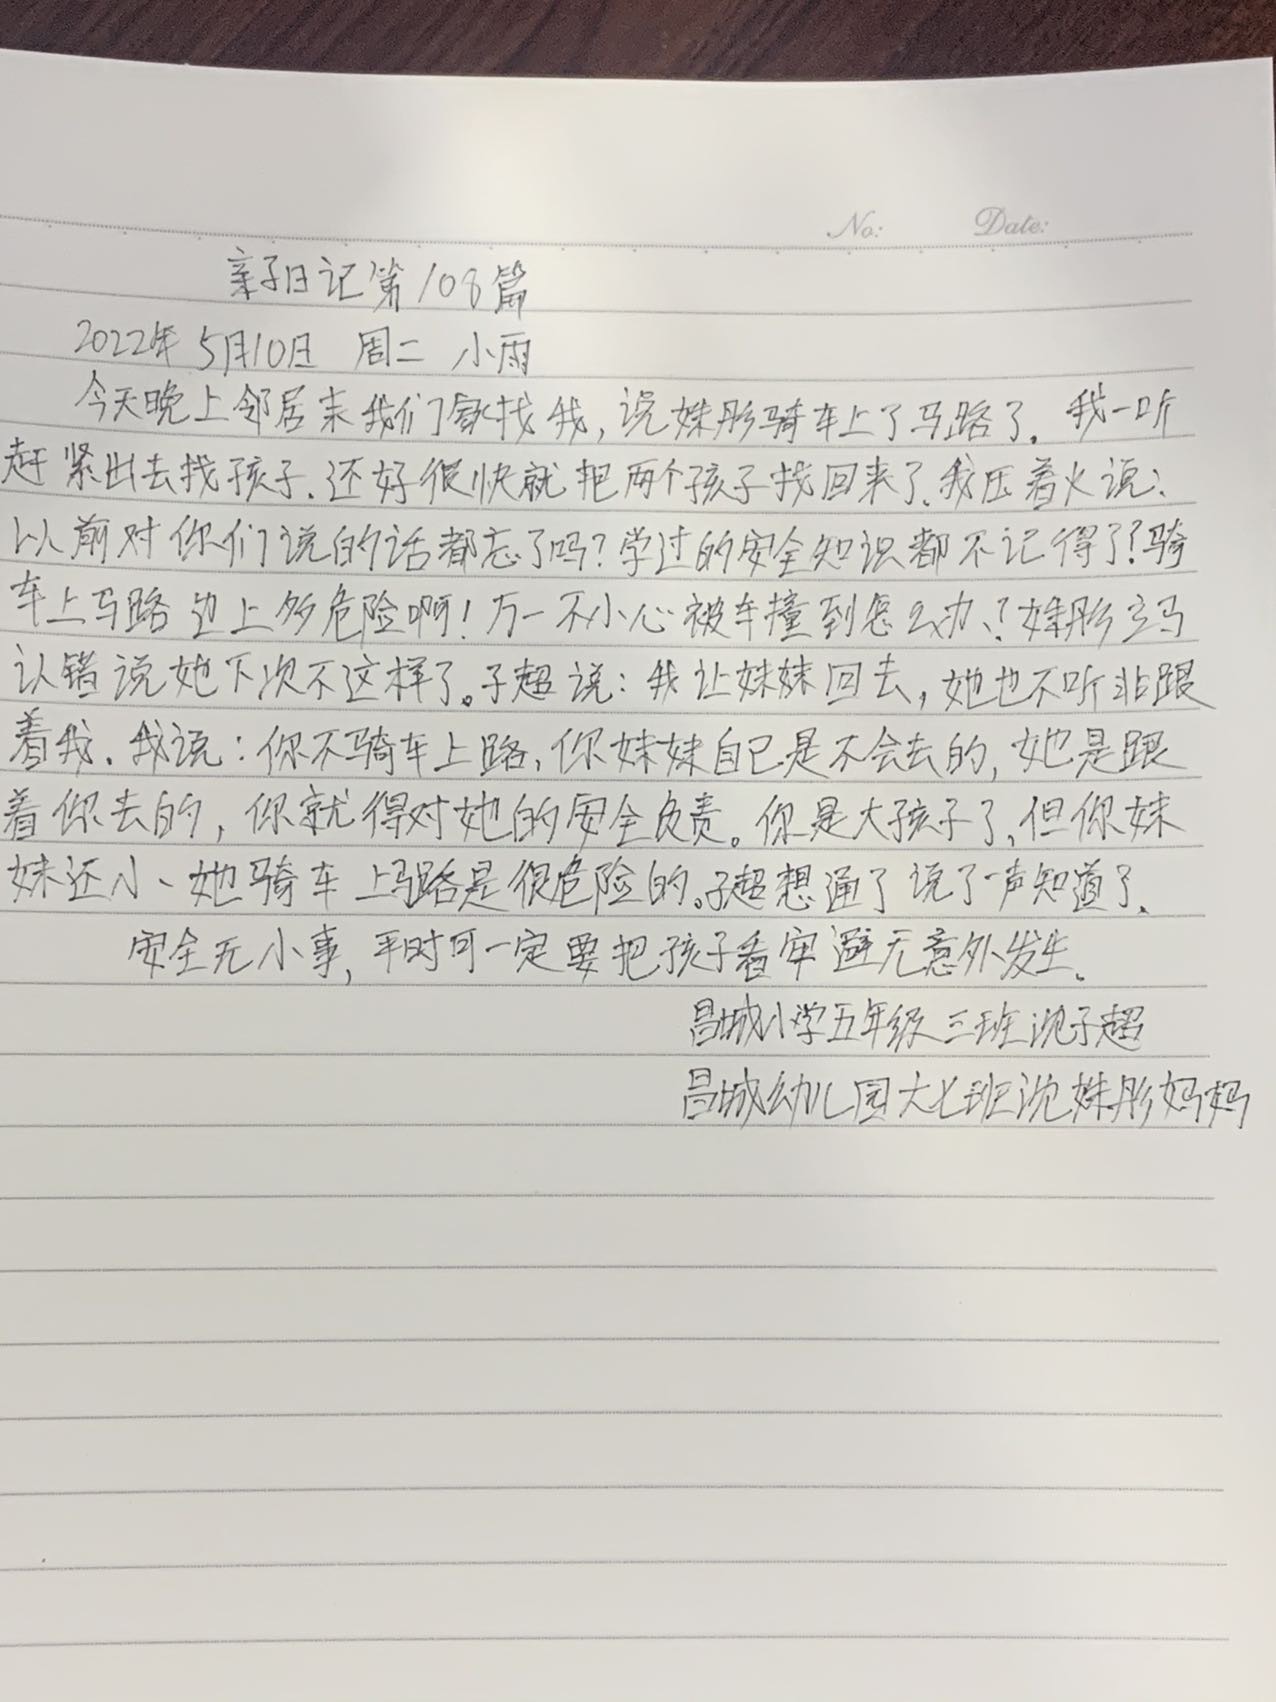 No: Date:
亲子日记第108篇
2022年5月10日 周二 小雨
今天晚上邻居来我们家找我,说姝彤骑车上了马路了.我一听
赶紧出去找孩子.还好很快就把两个孩子找回来了.我压着火说:
以前对你们说的话都忘了吗?学过的安全知识都不记得了?骑
车上马路边上多危险啊!万一不小心被车撞到怎么办?姝彤立马
认错说她下次不这样了。子超说:我让妹妹回去,她也不听非跟
着我.我说:你不骑车上路,你妹妹自己是不会去的,她是跟
着你去的,你就得对她的安全负责。你是大孩子了,但你妹
妹还小、她骑车上马路是很危险的。子超想通了说了一声知道了.
安全无小事,平时可一定要把孩子看牢避无意外发生.
昌城小学五年级三班沈子超
昌城幼儿园大七班沈姝彤妈妈